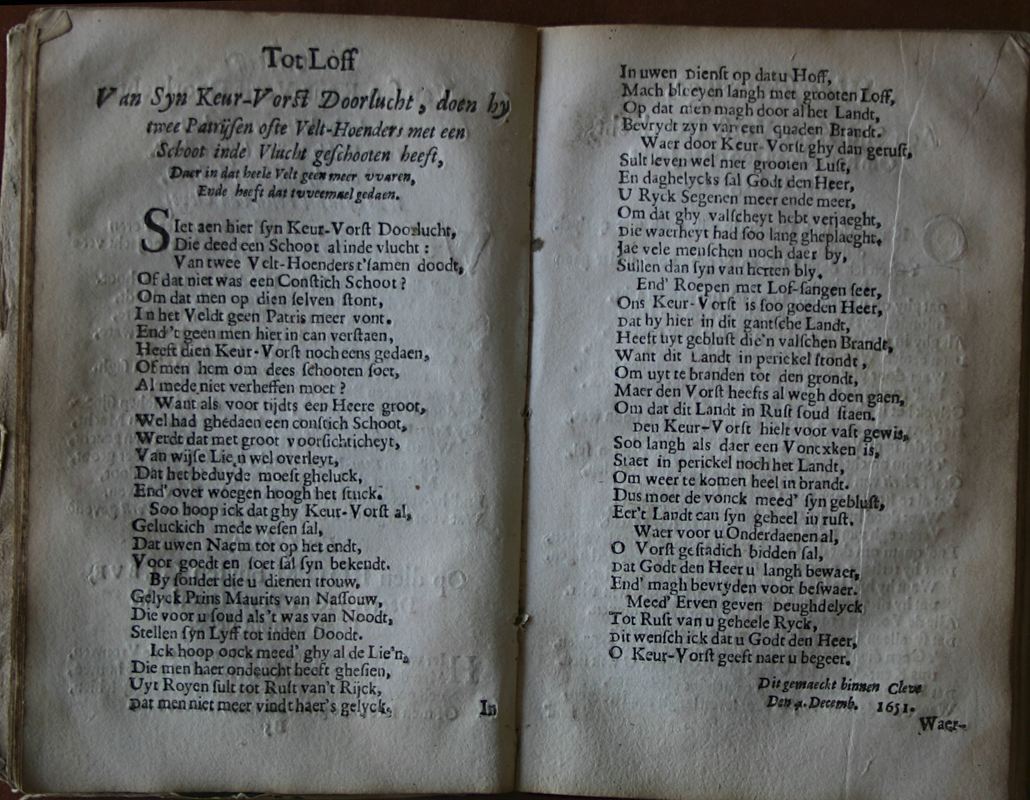 Tot Loff
Van Syn Keur-Vorſt Doorlucht, doen hy
twee Patrijſen ofte Velt-Hoenders met een
Schoot inde Vlucht geſchooten heeft,
Daer in dat heele Velt geen meer vvaren,
Ende heeft dat tvveemael gedaen.
SIet aen hier ſyn Keur-Vorſt Doorlucht,
Die deed een Schoot al inde vlucht:
Van twee Velt-Hoenders t'ſamen doodt,
Of dat niet was een Conſtich Schoot?
Om dat men op dien ſelven ſtont,
In het Veldt geen Patris meer vont.
End't geen men hier in can verſtaen,
Heeft dien Keur-Vorſt noch eens gedaen,
Of men hem om dees ſchooten ſoet,
Al mede niet verheffen moet?
Want als voor tijdts een Heere groot,
Wel had ghedaen een conſtich Schoot,
Werdt dat met groot voorſichticheyt,
Van wijſe Lie,n wel overleyt,
Dat het beduyde moeſt gheluck,
End' over woegen hoogh het ſtuck.
Soo hoop ick dat ghy Keur-Vorſt al,
Geluckich mede weſen ſal,
Dat uwen Naem tot op het endt,
Voor goedt en ſoet ſal ſyn bekendt.
By ſonder die u dienen trouw,
Gelyck Prins Maurits van Naſſouw,
Die voor u ſoud als't was van Noodt,
Stellen ſyn Lyff tot inden Doodt.
Ick hoop oock meed' ghy al de Lie'n,
Die men haer ondeucht heeft gheſien,
Uyt Royen ſult tot Ruſt van't Rijck,
Dat men niet meer vindt haer's gelyck,
In
In uwen Dienſt op dat u Hoff,
Mach bloeyen langh met grooten Loff,
Op dat men magh door al het Landt,
Bevrydt zyn van een quaden Brandt.
Waer door Keur-Vorſt ghy dan geruſt,
Sult leven wel met grooten Luſt,
En daghelycks ſal Godt den Heer,
U Ryck Segenen meer ende meer,
Om dat ghy valſcheyt hebt verjaeght,
Die waerheyt had ſoo lang gheplaeght,
Jae vele menſchen noch daer by,
Sullen dan ſyn van herten bly.
End' Roepen met Lof-ſangen ſeer,
Ons Keur-Vorſt is ſoo goeden Heer,
Dat hy hier in dit gantſche Landt,
Heeft uyt gebluſt die'n valſchen Brandt,
Want dit Landt in perickel ſtondt,
Om uyt te branden tot den grondt,
Maer den Vorſt heefts al wegh doen gaen,
Om dat dit Landt in Ruſt ſoud ſtaen.
Den Keur-Vorſt hielt voor vaſt gewis,
Soo langh als daer een Voncxken is,
Staet in perickel noch het Landt,
Om weer te komen heel in brandt.
Dus moet de vonck meed' ſyn gebluſt,
Eer't Landt can ſyn geheel in ruſt.
Waer voor u Onderdaenen al,
O Vorſt geſtadich bidden ſal,
Dat Godt den Heer u langh bewaer,
End' magh bevryden voor beſwaer.
Meed' Erven geven Deughdelyck
Tot Ruſt van u geheele Ryck,
Dit wenſch ick dat u Godt den Heer,
O Keur-Vorſt geeft naer u begeer.
Dit gemaeckt binnen Cleve
Den 4. Decemb. 1651.
Waer-